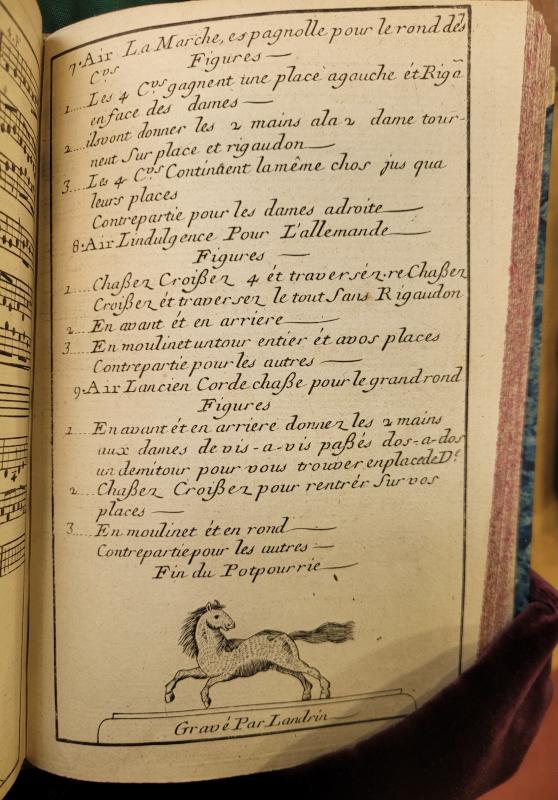 7. Air La Marche, espagnolle pour le rond des
C.vs Figures —
1.... Les 4 C.vs gagnent une place agauche ét Rigã
enface des dames —
2.... ilsvont donner les 2 mains ala 2 dame tour-
nent Sur place et rigaudon —
3.... Les 4 C.vs Continüent la même chos jus qua
leurs places
Contrepartie pour les dames adroite —
8. Air L'indulgence Pour L'allemande —
Figures —
1.... Chaßez Croißez 4 ét traverséz. re Chaßez
Croißez ét traversez le tout Sans Rigaudon
2.... En avant ét en arriere —
3.... En moulinet untour entier ét avos places
Contrepartie pour les autres —
9. Air Lancien Corde chaße pour le grand rond
Figures
1.... En avant ét en arriere donnez les 2 mains
aux dames de vis-a-vis paßés dos-a-dos
un demitour pour vous trouver enplacede D.e
2.... Chaßez Croißez pour rentrér Sur vos
places —
3.... En moulinet ét en rond —
Contrepartie pour les autres —
Fin du Potpourrie —
Gravé Par Landrin